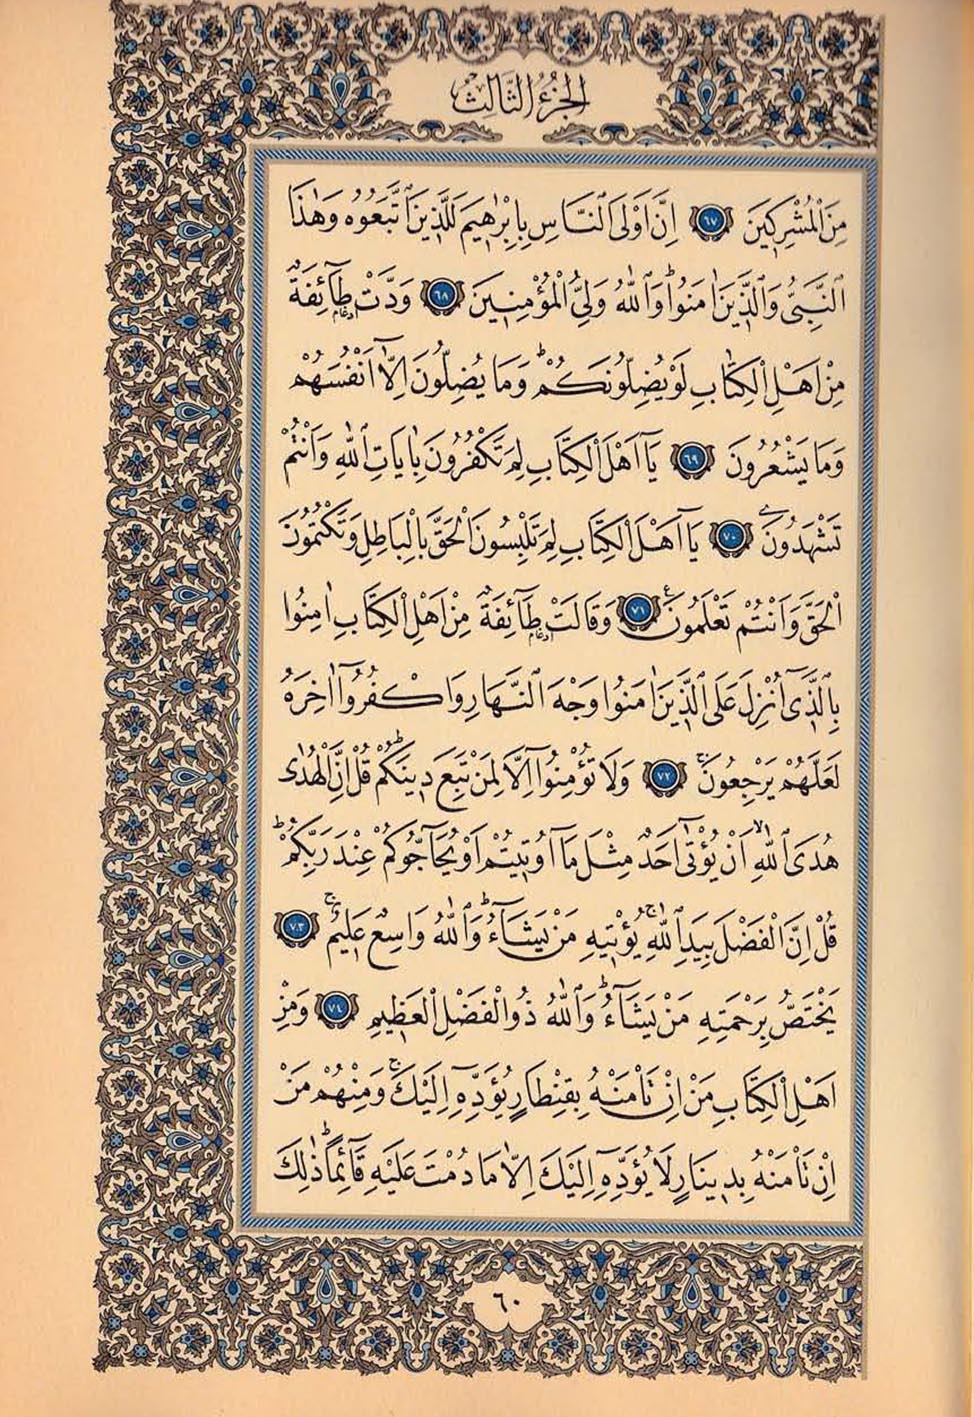 الجزء الثالث
مِنَ الْمُشْرِكِينَ ﴿٦٧﴾ اِنَّ اَوْلَى النَّاسِ بِاِبْرٰهِيمَ لَلَّذِينَ اتَّبَعُوهُ وَهٰذَا
النَّبِىُّ وَالَّذِينَ اٰمَنُواۜ وَاللّٰهُ وَلِىُّ الْمُؤْمِنِينَ ﴿٦٨﴾ وَدَّتْ طَٓائِفَةٌ
مِنْ اَهْلِ الْكِتَابِ لَوْ يُضِلُّونَكُمْۜ وَمَا يُضِلُّونَ اِلَّٓا اَنْفُسَهُمْ
وَمَا يَشْعُرُونَ ﴿٦٩﴾ يَٓا اَهْلَ الْكِتَابِ لِمَ تَكْفُرُونَ بِاٰيَاتِ اللّٰهِ وَاَنْتُمْ
تَشْهَدُونَ ﴿٧٠﴾ يَٓا اَهْلَ الْكِتَابِ لِمَ تَلْبِسُونَ الْحَقَّ بِالْبَاطِلِ وَتَكْتُمُونَ
الْحَقَّ وَاَنْتُمْ تَعْلَمُونَ ﴿٧١﴾ وَقَالَتْ طَٓائِفَةٌ مِنْ اَهْلِ الْكِتَابِ اٰمِنُوا
بِالَّذِٓى اُنْزِلَ عَلَى الَّذِينَ اٰمَنُوا وَجْهَ النَّهَارِ وَاكْفُرُٓوا اٰخِرَهُ
لَعَلَّهُمْ يَرْجِعُونَۚ ﴿٧٢﴾ وَلَا تُؤْمِنُٓوا اِلَّا لِمَنْ تَبِعَ دِينَكُمْۜ قُلْ اِنَّ الْهُدٰى
هُدَى اللّٰهِۙ اَنْ يُؤْتٰٓى اَحَدٌ مِثْلَ مَٓا اُو۫تِيتُمْ اَوْ يُحَٓاجُّوكُمْ عِنْدَ رَبِّكُمْۜ
قُلْ اِنَّ الْفَضْلَ بِيَدِ اللّٰهِۚ يُؤْتِيهِ مَنْ يَشَٓاءُۜ وَاللّٰهُ وَاسِعٌ عَلِيمٌۚ ﴿٧٣﴾
يَخْتَصُّ بِرَحْمَتِهِ مَنْ يَشَٓاءُۜ وَاللّٰهُ ذُو الْفَضْلِ الْعَظِيمِ ﴿٧٤﴾ وَمِنْ
اَهْلِ الْكِتَابِ مَنْ اِنْ تَأْمَنْهُ بِقِنْطَارٍ يُؤَدِّهِٓ اِلَيْكَۚ وَمِنْهُمْ مَنْ
اِنْ تَأْمَنْهُ بِدِينَارٍ لَا يُؤَدِّهِٓ اِلَيْكَ اِلَّا مَا دُمْتَ عَلَيْهِ قَٓائِمًاۜ ذٰلِكَ
٦٠